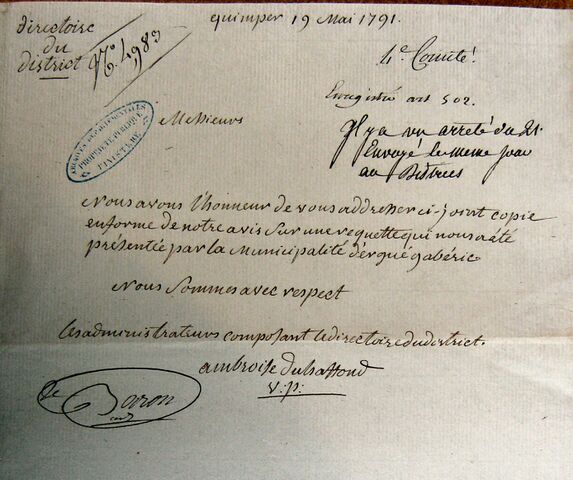 Directoire
du
District
N° 4,983
quimper 19 Mai 1791.
4e. Comité.
Enregistré art 502.
Il y a un arreté du 21.
Envoyé le meme jour
au District
ARCHIVES DEPARTEMENTALES
PROPRIETE PUBLIQUE
FINISTERE
Messieurs
Nous avons l'honneur de vous addresser ci-joint copie
en forme de notre avis sur une requette qui nous a été
présentée par la Municipalité d'ergué gabéric
Nous sommes avec respect
les administrateurs composant le directoire du district.
ambroise
v: p:
Le